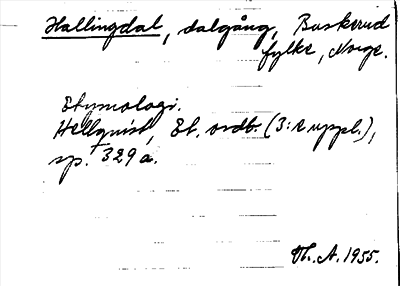 Hallingdal, dalgång, Buskerud
fylke, Norge.
Etymologi.
Hellquist, Et. ordb. (3:e uppl.),
sp. 329 a.
Th. A. 1955.